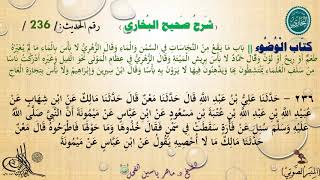 شرح صحيح البخاري
رقم الحديث: / 236 /
كتاب الوضوء || باب ما يقع من النجاسات في السمن والماء وقال الزهري لا بأس بالماء ما لم يغيره
طعم أو ريح أو لون وقال حماد لا بأس بريش الميتة وقال الزهري في عظام الموتى نحو الفيل وغيره أدركت ناسا
من سلف العلماء يمتشطون بها ويدهنون فيها لا يرون به بأسا وقال ابن سيرين وإبراهيم ولا بأس بتجارة العاج
٢٣٦ - حدثنا علي بن عبد الله قال حدثنا معن قال حدثنا مالك عن ابن شهاب عن
عبيد الله بن عبد الله بن عتبة بن مسعود عن ابن عباس عن ميمونة أن النبي صلى الله
عليه وسلم سئل عن فأرة سقطت في سمن فقال خذوها وما حولها فاطرحوه قال معن
حدثنا مالك ما لا أحصيه يقول عن ابن عباس عن ميمونة
الشيخ د. ماهر ياسين الفحل